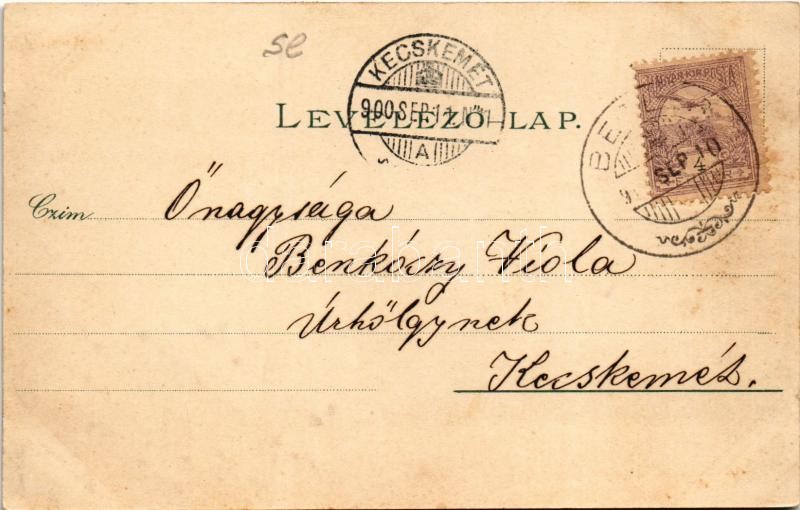 se
KECSKEMÉT
900 SEP 11
A
LEVELEZŐ-LAP.
MAGYAR KIR. POSTA
SEP 10
4
Czim
Őnagysága
Benkóczy Viola
Úrhölgynek
Kecskemét.
darabanth.com